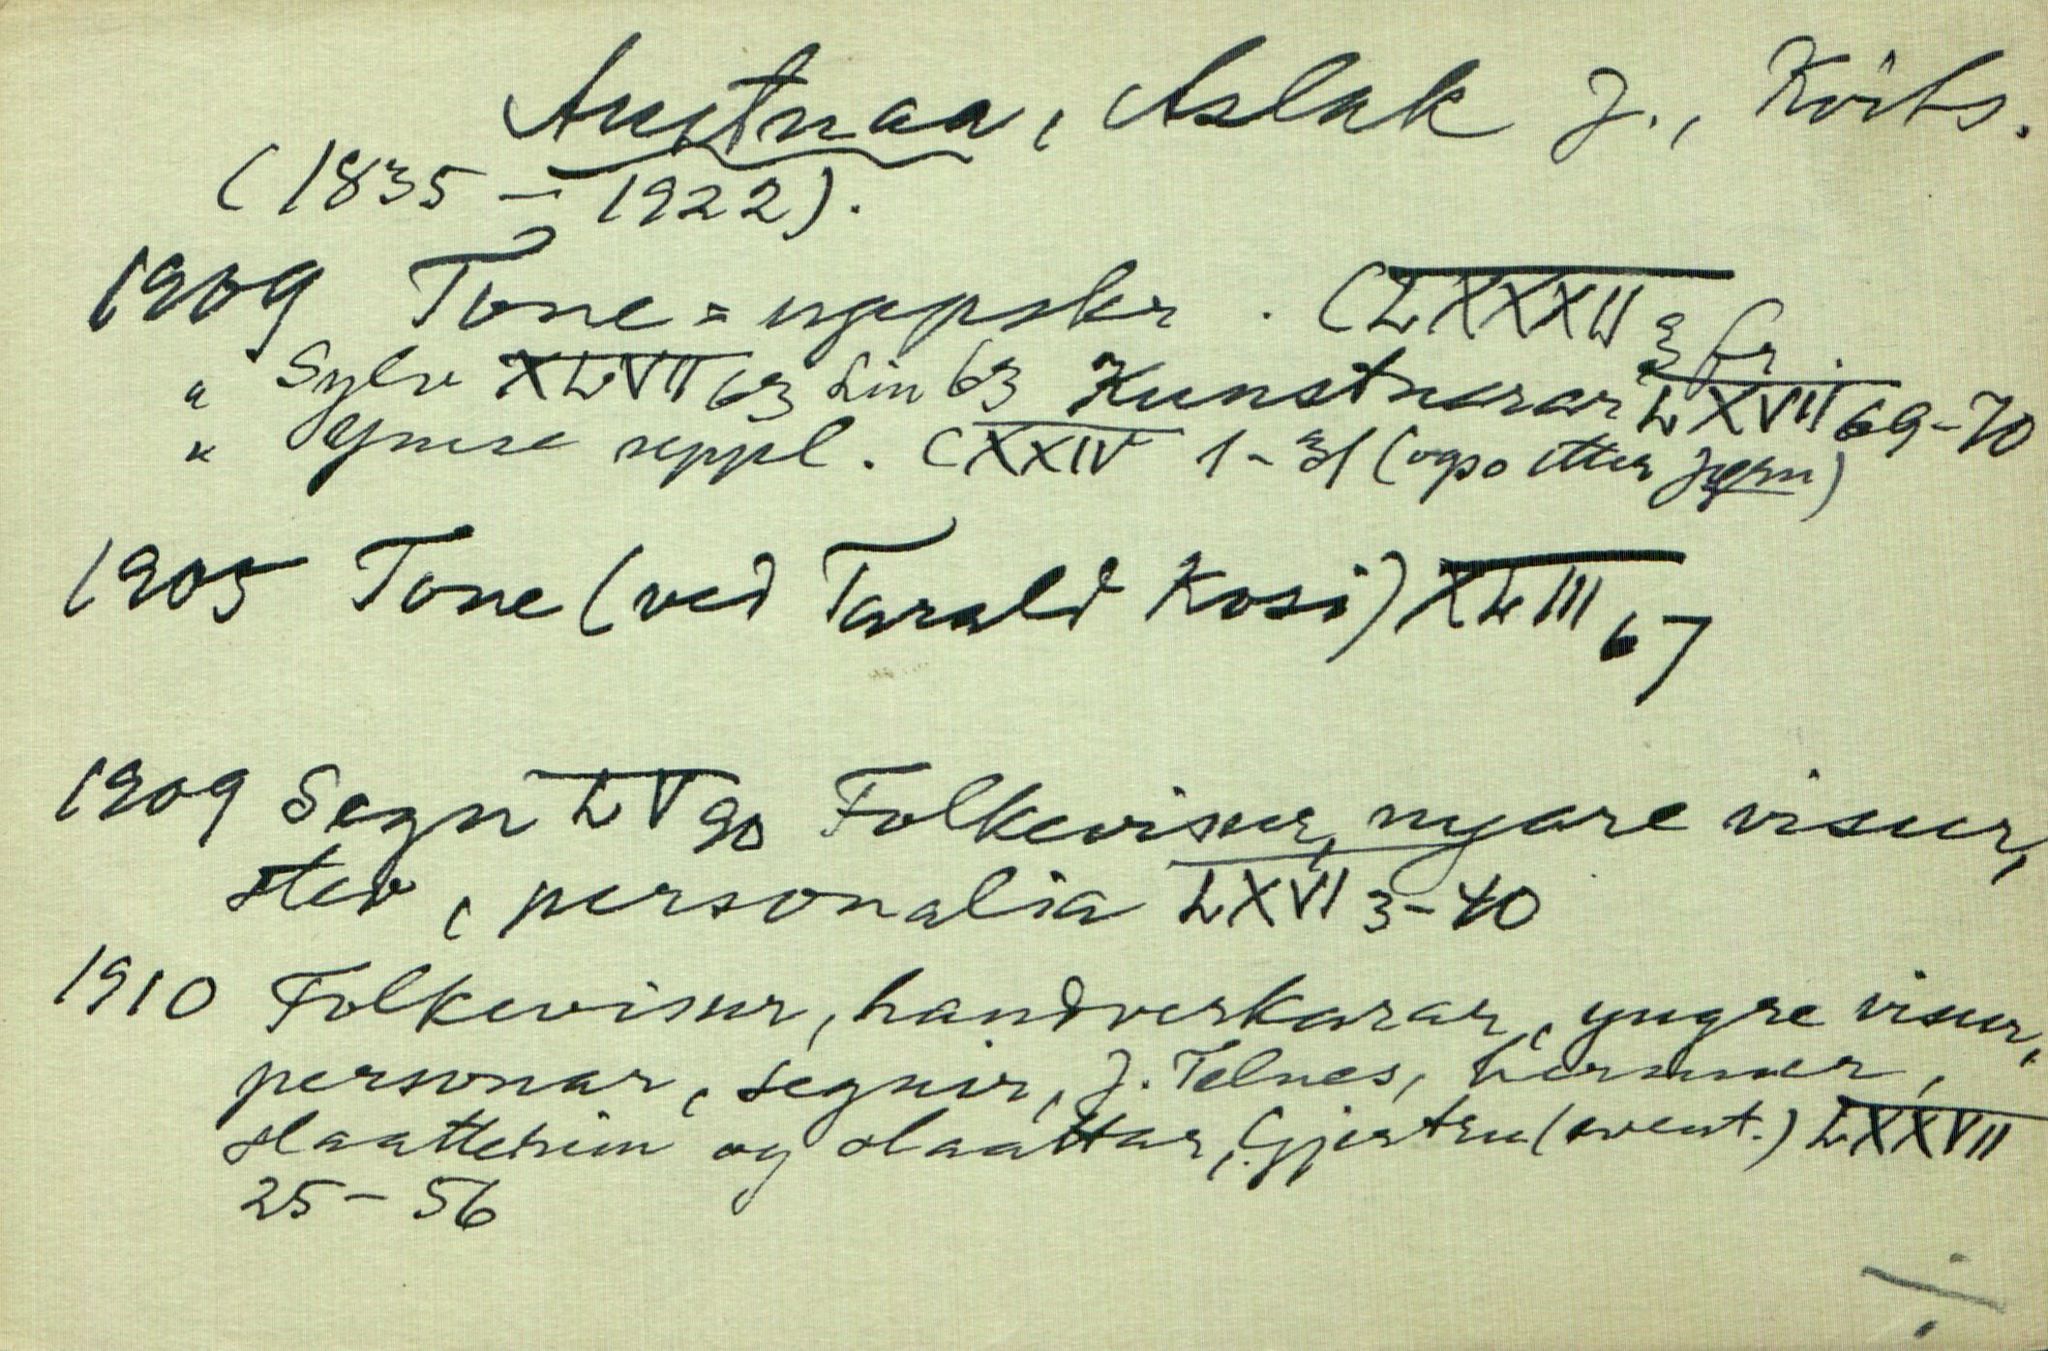 Austnaa, Aslak J., Kvits.
(1835 – 1922).
1909 Tone=uppskr. CLXXXII 3 fr.
" Sylv XLVII 63 Lin 63 Kunstnarar LXVII 69-70
" Ymse suppl. CXXIV 1-31 (ogso etter Jørn)
1905 Tone (ved Tarald Kosi) XLIII 67
1909 Segn LV 90 Folkevisur, nyare visur,
stev, personalia LXVI 3-40
1910 Folkevisur, handverkarar, yngre visur,
personar, segnir, J. Telnes, hermur,
slaatterim og slaattar, Gjertru (event.) LXXVII
25-56